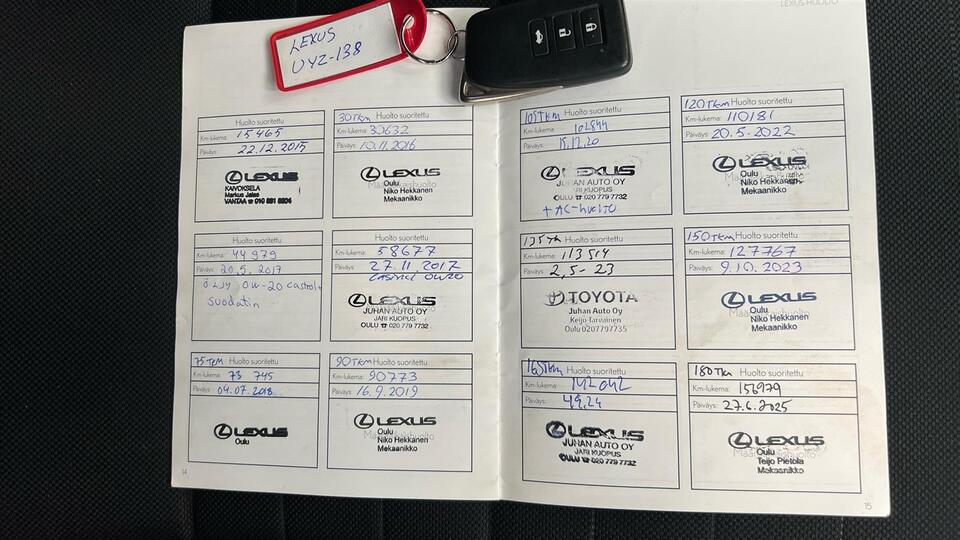 LEXUS
UYZ-138
LEXUS HUOLTO
Huolto suoritettu
Km-lukema: 15465
Päiväys: 22.12.2015
LEXUS
KAIVOKSELA
Markus Jalas
VANTAA ☎ 010
30TKM Huolto suoritettu
Km-lukema: 30632
Päiväys: 10.11.2016
LEXUS
Oulu
Niko Hekkanen
Mekaanikko
Huolto suoritettu
Km-lukema: 44979
Päiväys: 20.5.2017
ÖLJY 0W-20 castrol+
suodatin
Huolto suoritettu
Km-lukema: 58677
Päiväys: 27.11.2017
castrol 0W20
LEXUS
JUHAN AUTO OY
JARI KUOPUS
OULU ☎ 020 779 7732
75TKM Huolto suoritettu
Km-lukema: 73 745
Päiväys: 04.07.2018
LEXUS
Oulu
90TKM Huolto suoritettu
Km-lukema: 90773
Päiväys: 16.9.2019
LEXUS
Oulu
Niko Hekkanen
Mekaanikko
14
105TKM Huolto suoritettu
Km-lukema: 102844
Päiväys: 15.12.20
LEXUS
JUHAN AUTO OY
JARI KUOPUS
OULU ☎ 020 779 7732
+ AC-huolto
120TKM Huolto suoritettu
Km-lukema: 110181
Päiväys: 20.5.2022
LEXUS
Oulu
Niko Hekkanen
Mekaanikko
135TK Huolto suoritettu
Km-lukema: 113514
Päiväys: 2,5-23
TOYOTA
Juhan Auto Oy
Keijo Tarvainen
Oulu 0207797735
150TKM Huolto suoritettu
Km-lukema: 127767
Päiväys: 9.10.2023
LEXUS
Oulu
Niko Hekkanen
Mekaanikko
165TKM Huolto suoritettu
Km-lukema: 142042
Päiväys: 4.9.24
LEXUS
JUHAN AUTO OY
JARI KUOPUS
OULU ☎ 020 779 7732
180TKM Huolto suoritettu
Km-lukema: 156979
Päiväys: 27.6.2025
LEXUS
Oulu
Teijo Pietola
Mekaanikko
15